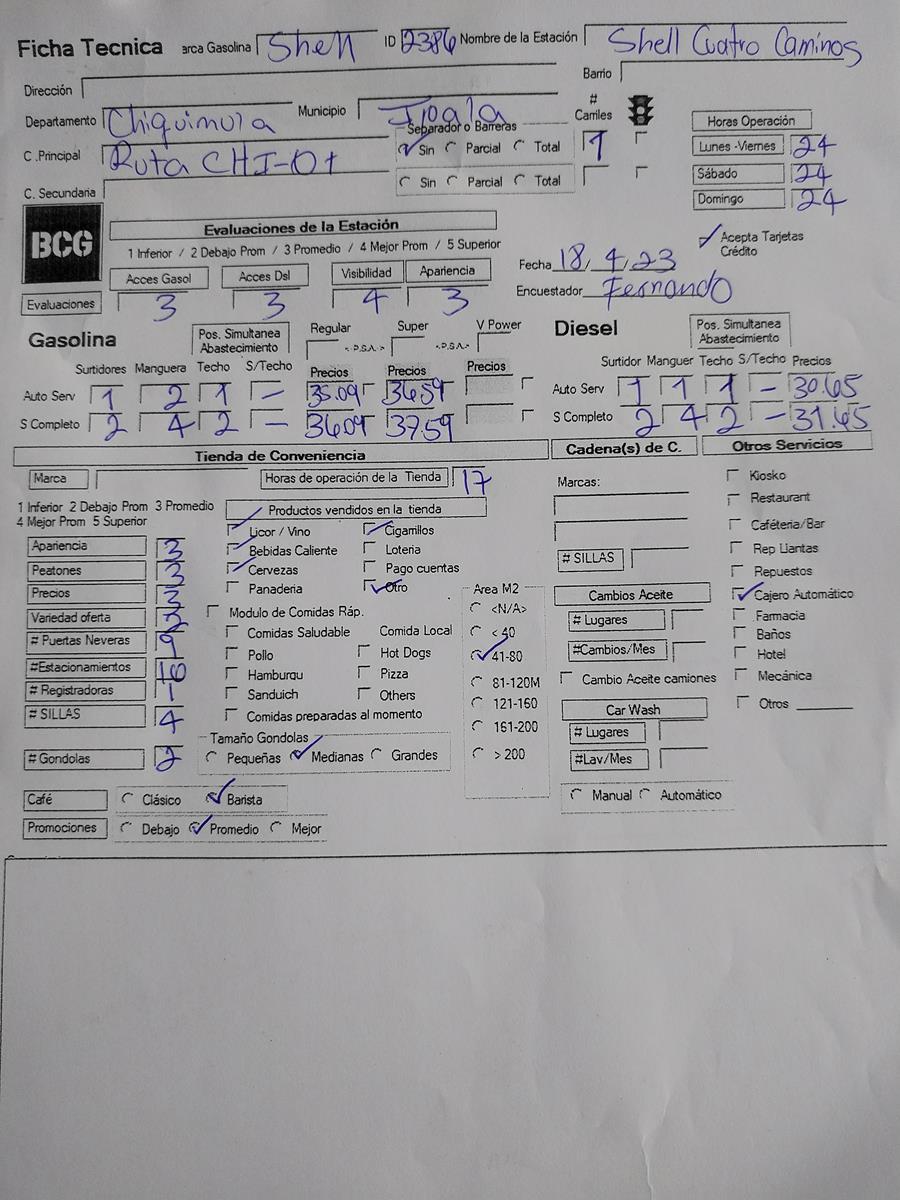 Ficha Tecnica arca Gasolina Shell ID 2386 Nombre de la Estación Shell Cuatro Caminos
Dirección Barrio
Departamento Chiquimula Municipio Ipala # Carriles Horas Operación
Separador o Barreras
C .Principal Ruta CHI-01 Sin Parcial Total 1 Lunes -Viernes 24
C. Secundaria Sin Parcial Total Sábado 24
Domingo 24
BCG Evaluaciones de la Estación
1 Inferior / 2 Debajo Prom / 3 Promedio / 4 Mejor Prom / 5 Superior
Acepta Tarjetas Crédito
Acces Gasol Acces Dsl Visibilidad Apariencia Fecha 18/4/23
Evaluaciones 3 3 4 3 Encuestador Fernando
Gasolina Pos. Simultanea Abastecimiento Regular <.P.S.A.> Super <.P.S.A.> V Power Diesel Pos. Simultanea Abastecimiento
Surtidores Manguera Techo S/Techo Precios Precios Precios Surtidor Manguer Techo S/Techo Precios
Auto Serv 1 2 1 - 35.09 36.59 Auto Serv 1 1 1 - 30.65
S Completo 2 4 2 - 36.09 37.59 S Completo 2 4 2 - 31.65
Tienda de Conveniencia Cadena(s) de C. Otros Servicios
Marca Horas de operación de la Tienda 17 Marcas: Kiosko
1 Inferior 2 Debajo Prom 3 Promedio Productos vendidos en la tienda Restaurant
4 Mejor Prom 5 Superior
Licor / Vino Cigarrillos Caféteria/Bar
Apariencia 3 Bebidas Caliente Loteria # SILLAS Rep Llantas
Peatones 3 Cervezas Pago cuentas Repuestos
Precios 3 Panaderia Otro Area M2 Cambios Aceite Cajero Automático
Variedad oferta Modulo de Comidas Ráp. <N/A> # Lugares Farmacia
# Puertas Neveras 9 Comidas Saludable Comida Local < 40 Baños
#Estacionamientos 10 Pollo Hot Dogs 41-80 #Cambios/Mes Hotel
# Registradoras 1 Hamburqu Pizza 81-120M Cambio Aceite camiones Mecánica
# SILLAS 4 Sanduich Others 121-160 Car Wash Otros
Comidas preparadas al momento 161-200 # Lugares
Tamaño Gondolas
# Gondolas 2 Pequeñas Medianas Grandes > 200 #Lav/Mes
Café Clásico Barista Manual Automático
Promociones Debajo Promedio Mejor